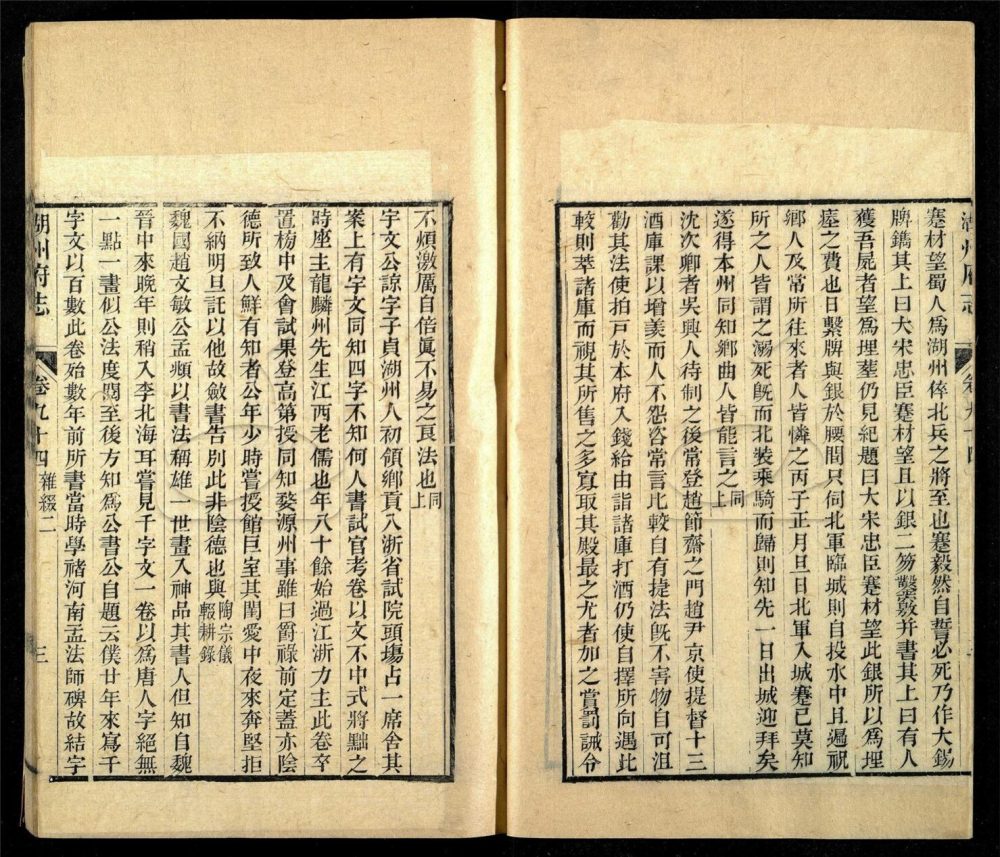 湖州府志
卷九十四
蹇材望蜀人爲湖州倅北兵之將至也蹇毅然自誓必死乃作大錫
牌鐫其上曰大宋忠臣蹇材望且以銀二笏鑿竅并書其上曰有人
獲吾屍者望爲埋葬仍見紀題曰大宋忠臣蹇材望此銀所以爲埋
瘞之費也日繫牌與銀於腰間只伺北軍臨城則自投水中且遍祝
鄉人及常所往來者人皆憐之丙子正月旦日北軍入城蹇已莫知
所之人皆謂之溺死旣而北裝乘騎而歸則知先一日出城迎拜矣
遂得本州同知鄉曲人皆能言之同上
沈次卿者吳興人待制之後常登趙節齋之門趙尹京使提督十三
酒庫課以增羡而人不怨咨常言比較自有捷法旣不害物自可沮
勸其法使拍戸於本府入錢給由詣諸庫打酒仍使自擇所向遇此
較則萃諸庫而視其所售之多寡取其殿最之尤者加之賞罰誡令
不煩激厲自倍眞不易之良法也同上
宇文公諒字子貞湖州人初領鄉貢入浙省試院頭場占一席舍其
案上有宇文同知四字不知何人書試官考卷以文不中式將黜之
時座主龍麟州先生江西老儒也年八十餘始過江浙力主此卷卒
置榜中及會試果登高第授同知婺源州事雖曰爵祿前定蓋亦陰
德所致人鮮有知者公年少時嘗授館巨室其閨愛中夜來奔堅拒
不納明旦託以他故斂書告別此非陰德也與陶宗儀輟耕錄
魏國趙文敏公孟頫以書法稱雄一世畫入神品其書人但知自魏
晉中來晚年則稍入李北海耳嘗見千字文一卷以爲唐人字絕無
一點一畫似公法度閱至後方知爲公書公自題云僕廿年來寫千
字文以百數此卷殆數年前所書當時學禇河南孟法師碑故結字
湖州府志
卷九十四
雜綴二
三